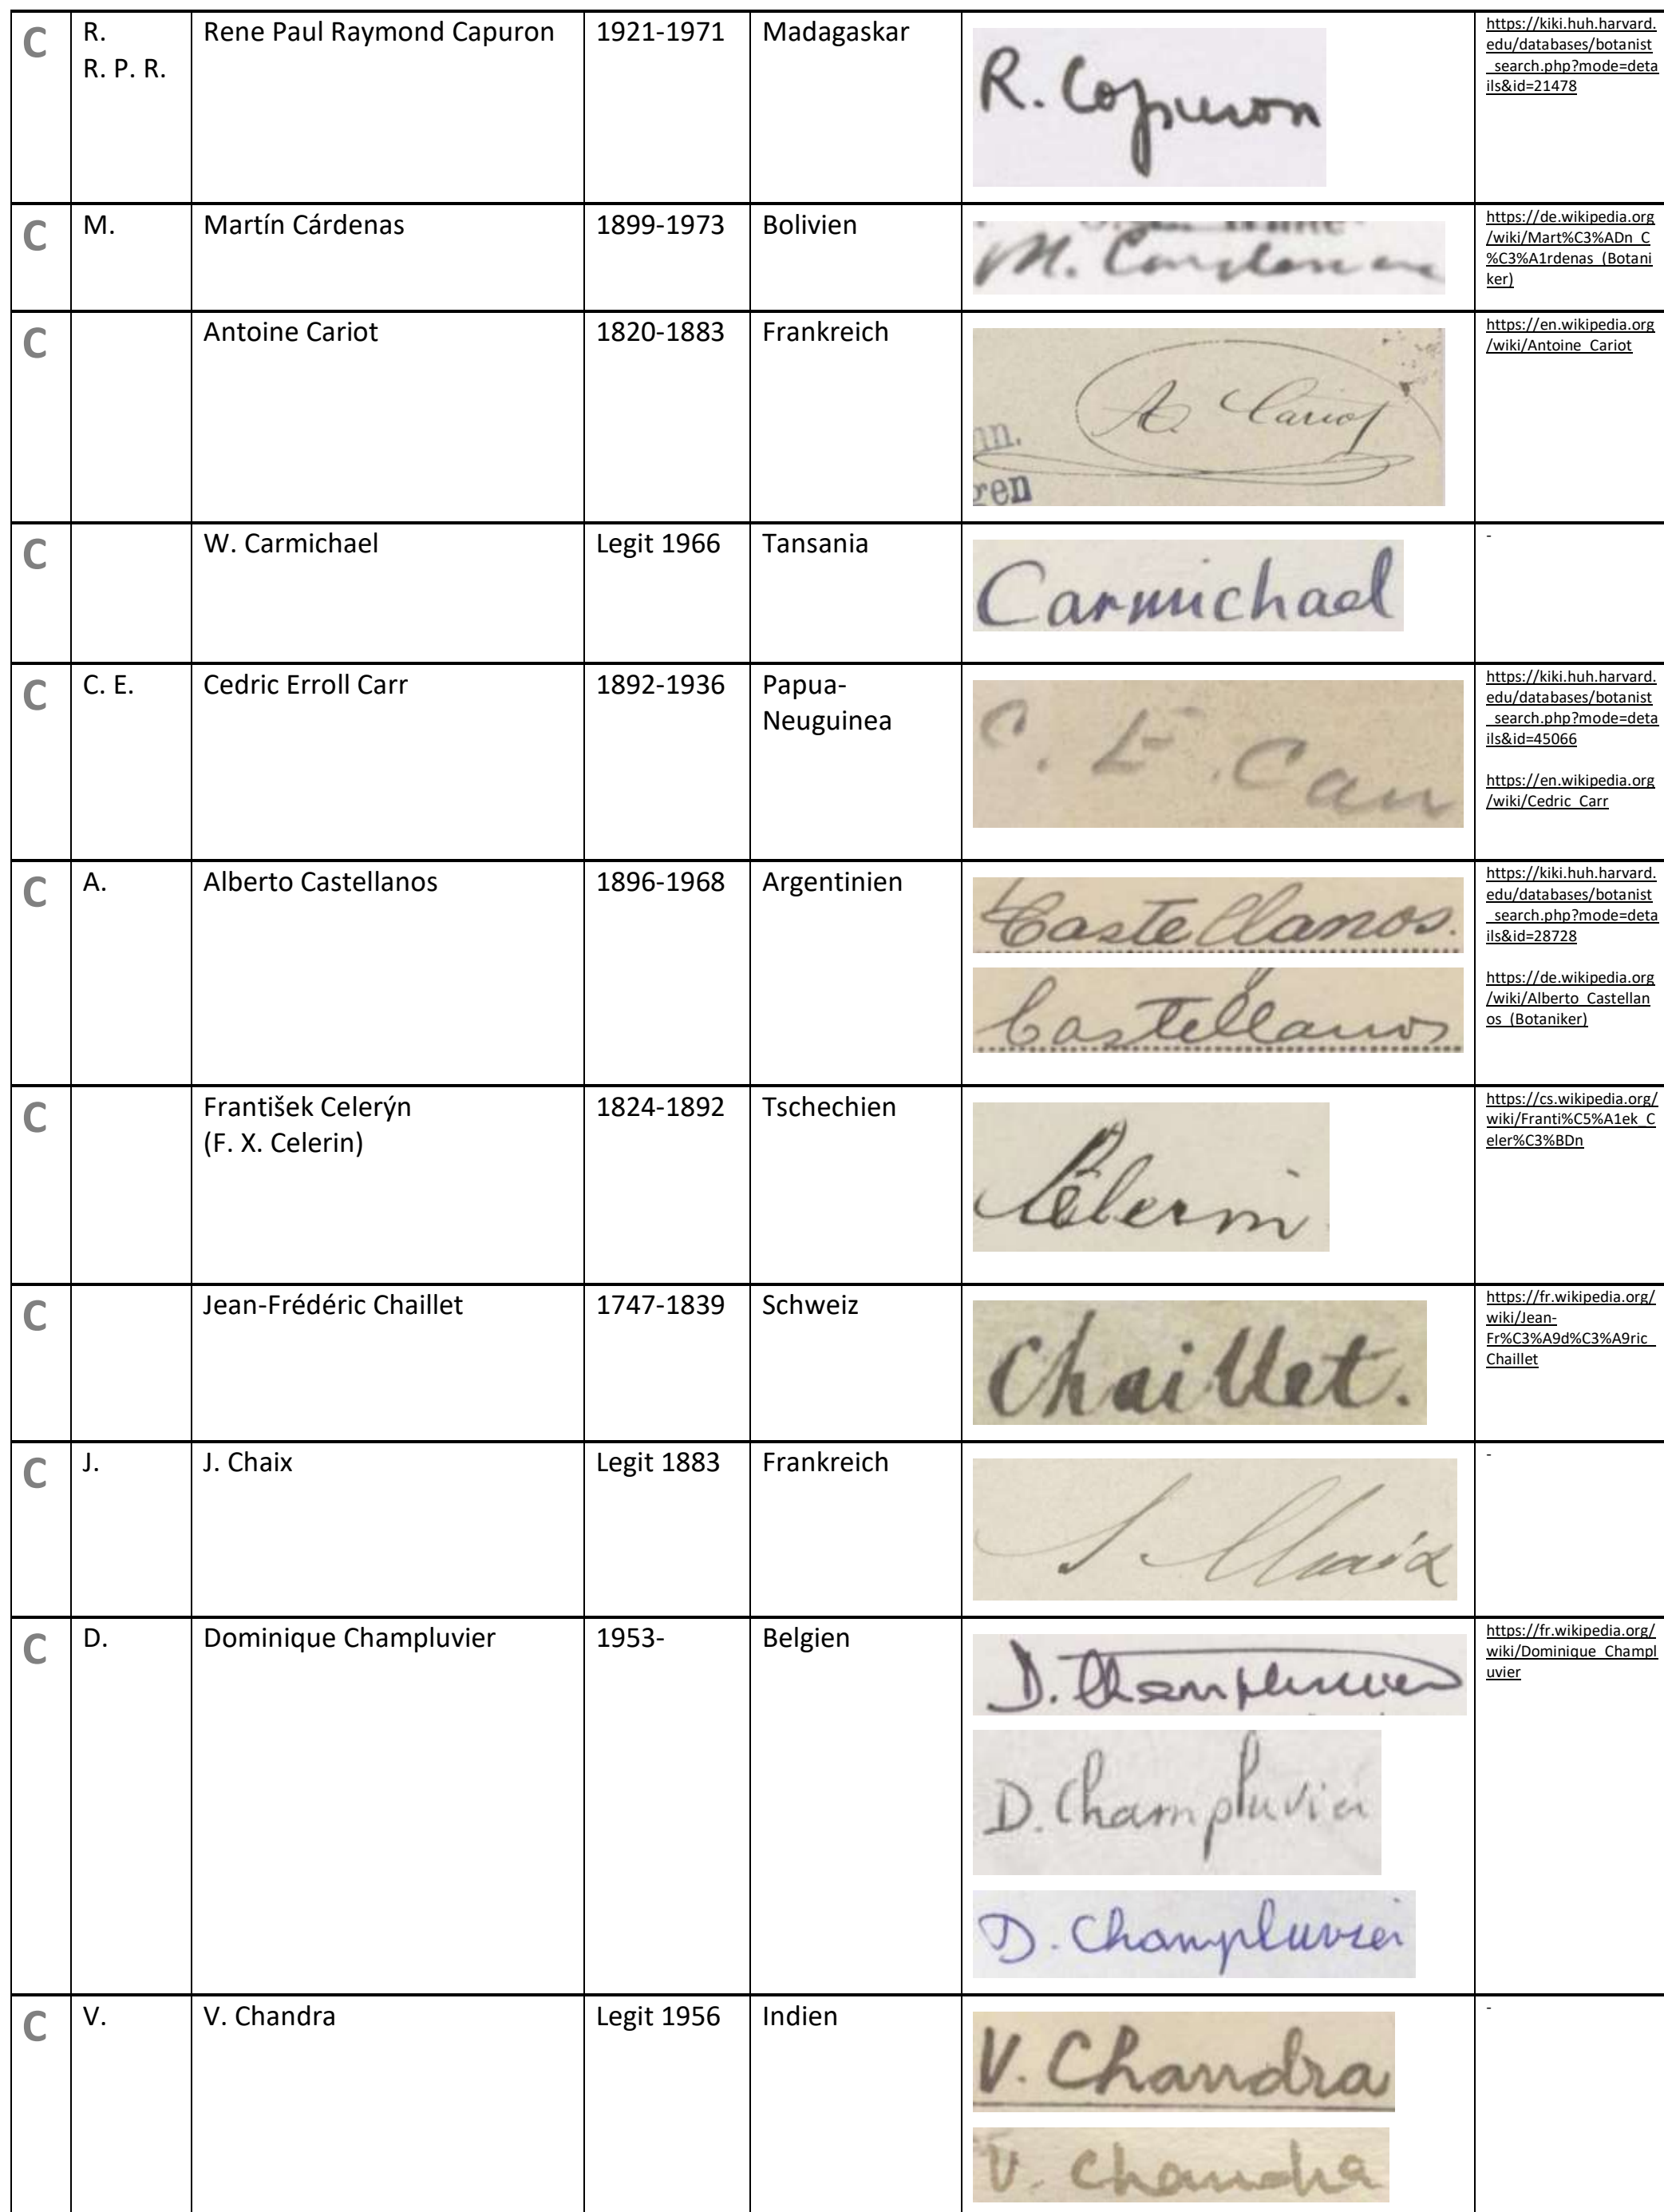 C R. Rene Paul Raymond Capuron 1921-1971 Madagaskar R. Capuron https://kiki.huh.harvard.
R. P. R. edu/databases/botanist
_search.php?mode=deta
ils&id=21478
C M. Martín Cárdenas 1899-1973 Bolivien M. Cardenas https://de.wikipedia.org
/wiki/Mart%C3%ADn_C
%C3%A1rdenas_(Botani
ker)
C Antoine Cariot 1820-1883 Frankreich A. Cariot https://en.wikipedia.org
/wiki/Antoine_Cariot
nn.
gen
C W. Carmichael Legit 1966 Tansania Carmichael -
C C. E. Cedric Erroll Carr 1892-1936 Papua- C. E. Carr https://kiki.huh.harvard.
Neuguinea edu/databases/botanist
_search.php?mode=deta
ils&id=45066
https://en.wikipedia.org
/wiki/Cedric_Carr
C A. Alberto Castellanos 1896-1968 Argentinien Castellanos. https://kiki.huh.harvard.
edu/databases/botanist
_search.php?mode=deta
ils&id=28728
Castellanos https://de.wikipedia.org
/wiki/Alberto_Castellan
os_(Botaniker)
C František Celerýn 1824-1892 Tschechien Celerin https://cs.wikipedia.org/
(F. X. Celerin) wiki/Franti%C5%A1ek_C
eler%C3%BDn
C Jean-Frédéric Chaillet 1747-1839 Schweiz Chaillet. https://fr.wikipedia.org/
wiki/Jean-
Fr%C3%A9d%C3%A9ric_
Chaillet
C J. J. Chaix Legit 1883 Frankreich J. Chaix -
C D. Dominique Champluvier 1953- Belgien D. Champluvier https://fr.wikipedia.org/
wiki/Dominique_Champl
uvier
D. Champluvier
D. Champluvier
C V. V. Chandra Legit 1956 Indien V. Chandra -
V. Chandra